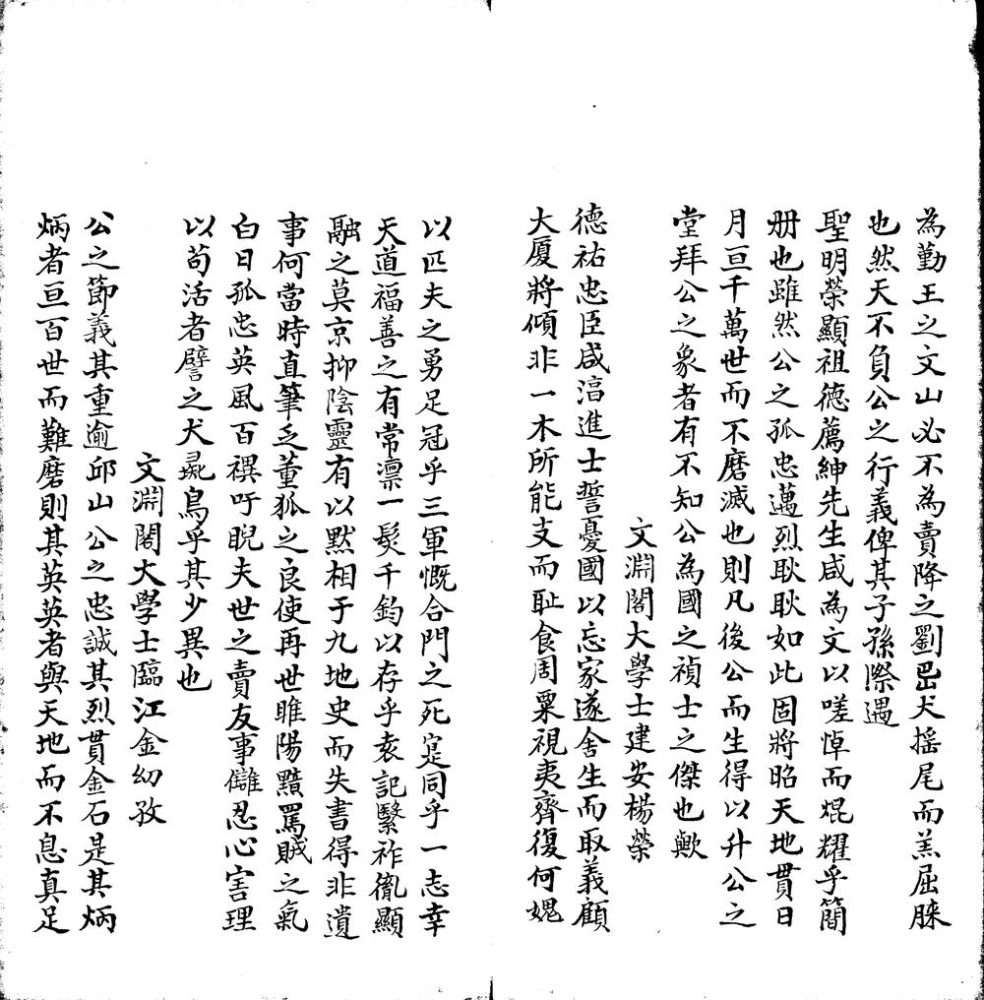 為勤王之文山必不為賣降之劉岊犬搖尾而羔屈膝
也然天不負公之行義俾其子孫際遇
聖明榮顯祖德薦紳先生咸為文以嗟悼而焜耀乎簡
册也雖然公之孤忠邁烈耿耿如此固將昭天地貫日
月亘千萬世而不磨滅也則凡後公而生得以升公之
堂拜公之象者有不知公為國之禎士之傑也歟
文淵閣大學士建安楊榮
德祐忠臣咸淳進士誓憂國以忘家遂舍生而取義顧
大厦將傾非一木所能支而耻食周粟視夷齊復何媿
以匹夫之勇足冠乎三軍慨合門之死寔同乎一志幸
天道福善之有常凛一髮千鈞以存乎袁記繫祚胤顯
融之莫京抑陰靈有以默相于九地史而失書得非遺
事何當時直筆乏董狐之良使再世睢陽黷罵賊之氣
白日孤忠英風百禩吁睨夫世之賣友事讎忍心害理
以苟活者譬之犬彘鳥乎其少異也
文淵閣大學士臨江金幼孜
公之節義其重逾邱山公之忠誠其烈貫金石是其炳
炳者亘百世而難磨則其英英者與天地而不息真足